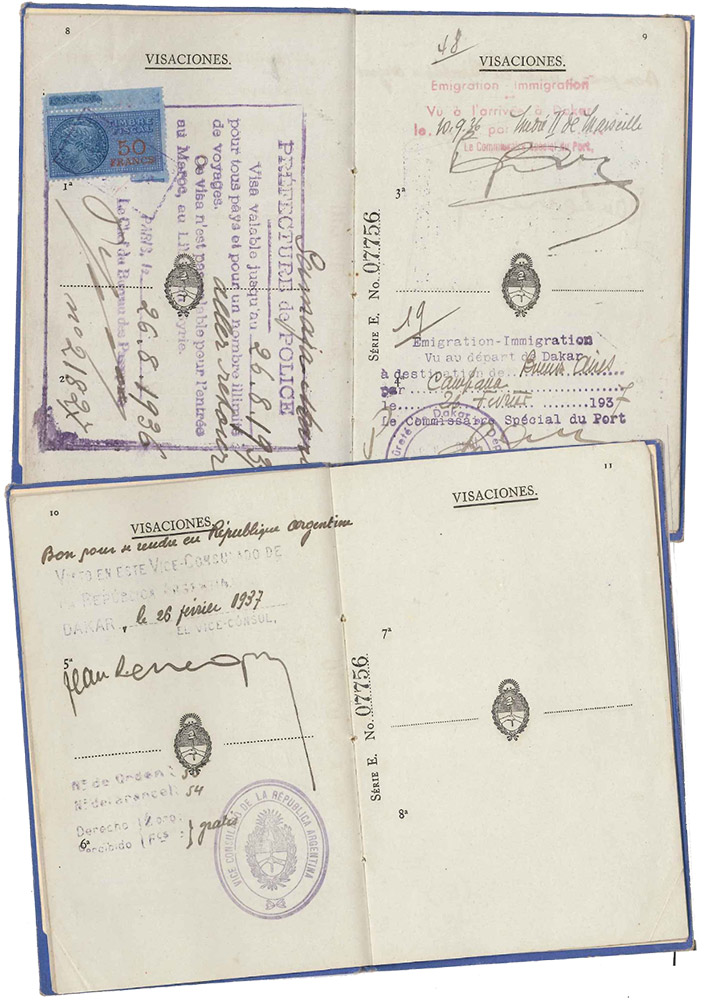 8
VISACIONES.
TIMBRE
FISCAL
50
FRANCS
PRÉFECTURE de POLICE
Visa valable jusqu'au 26.8.193
pour tous pays et pour un nombre illimité
de voyages. aller retour
Ce visa n'est pas valable pour l'entrée
au Maroc, au
PARIS, le 26.8.1936
Le Chef du Bureau des
no 2182
1ª
2
9
48
VISACIONES.
Emigration - Immigration
Vu à l'arrivée à Dakar
le 10.9.36 par Médie II de Marseille
Le Commissaire Spécial du Port,
3ª
SÉRIE E. No. 07756
19
Emigration-Immigration
Vu au départ de Dakar
à destination de Buenos Aires
4
par Campana
le 26 Février 1937
Le Commissaire Spécial du Port
Dakar
10
VISACIONES.
Bon pour se rendre en République argentine
VISTO EN ESTE VICE-CONSULADO DE
LA REPÚBLICA ARGENTINA,
DAKAR, le 26 février 1937
EL VICE-CONSUL,
5ª
Nº de Orden:
Nº del arancel: 54
Derecho
Percibido gratis
6ª
VICE CONSULADO DE LA REPUBLICA ARGENTINA
11
VISACIONES.
7ª
SÉRIE E. No. 07756
8ª